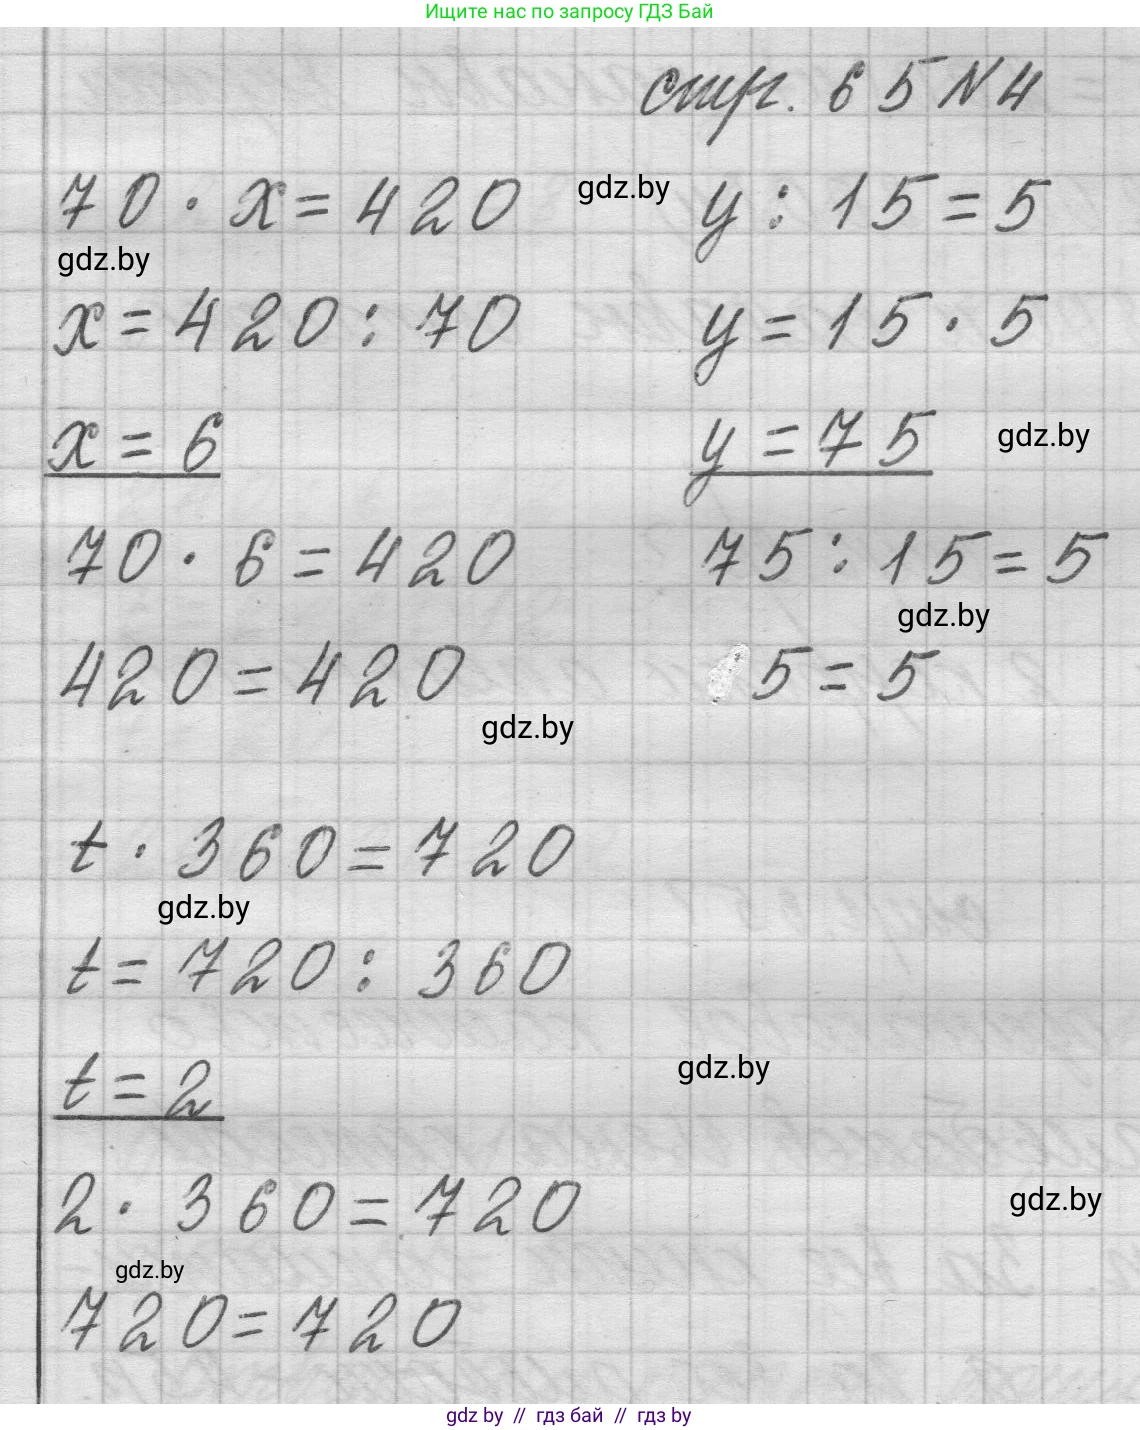 Ищите нас по запросу ГДЗ Бай
стр. 65 N 4
70 · x = 420
gdz.by
x = 420 : 70
x = 6
70 · 6 = 420
420 = 420
gdz.by
y : 15 = 5
y = 15 · 5
y = 75
gdz.by
75 : 15 = 5
gdz.by
5 = 5
gdz.by
t · 360 = 720
gdz.by
t = 720 : 360
t = 2
gdz.by
2 · 360 = 720
gdz.by
gdz.by
720 = 720
gdz by // гдз бай // гдз by